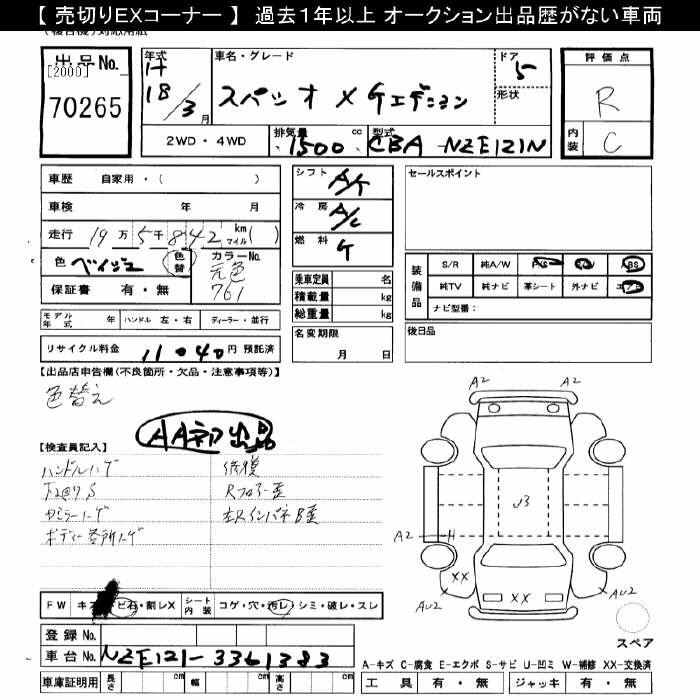 【 売切りEXコーナー 】 過去1年以上 オークション出品歴がない車両
出品No.
[2000]
70265
年式 H 18/3月
車名・グレード
スペシオ X Gエディション
ドア 5
形状
評価点
R
内装 C
2WD・4WD
排気量 1500 cc
型式 CBA-NZE121N
車歴 自家用・( )
車検 年 月
走行 19万5千842 km マイル( )
色 ベイジュ 色替
カラーNo. 元色 761
保証書 有・無
モデル年式 年
ハンドル 左・右
ディーラー・並行
リサイクル料金 11040円 預託済
シフト A/T
冷房 A/C
燃料 G
乗車定員 名
積載量 kg
総重量 kg
名変期限 月 日
セールスポイント
装備品
S/R 純A/W P/S P/W ABS
純TV 純ナビ 革シート 外ナビ エアB
ナビ型番:
後日品
【出品店申告欄(不良箇所・欠品・注意事項等)】
色替え
AA初出品
【検査員記入】
ハンドルハゲ
修復
Rフロアー歪
ボディー各所ハゲ
左Rインパネ B歪
FW キズ・ヒビ石・割レX
シート内装 コゲ・穴・汚レ・シミ・破レ・スレ
登録No.
車台No. NZE121-3361383
車庫証明用 長さ cm 幅 cm 高さ cm
A2
A2
U3
A2
XX
XX
AU2
AU2
スペア
A-キズ C-腐食 E-エクボ S-サビ U-凹ミ W-補修 XX-交換済
工具 有・無 ジャッキ 有・無